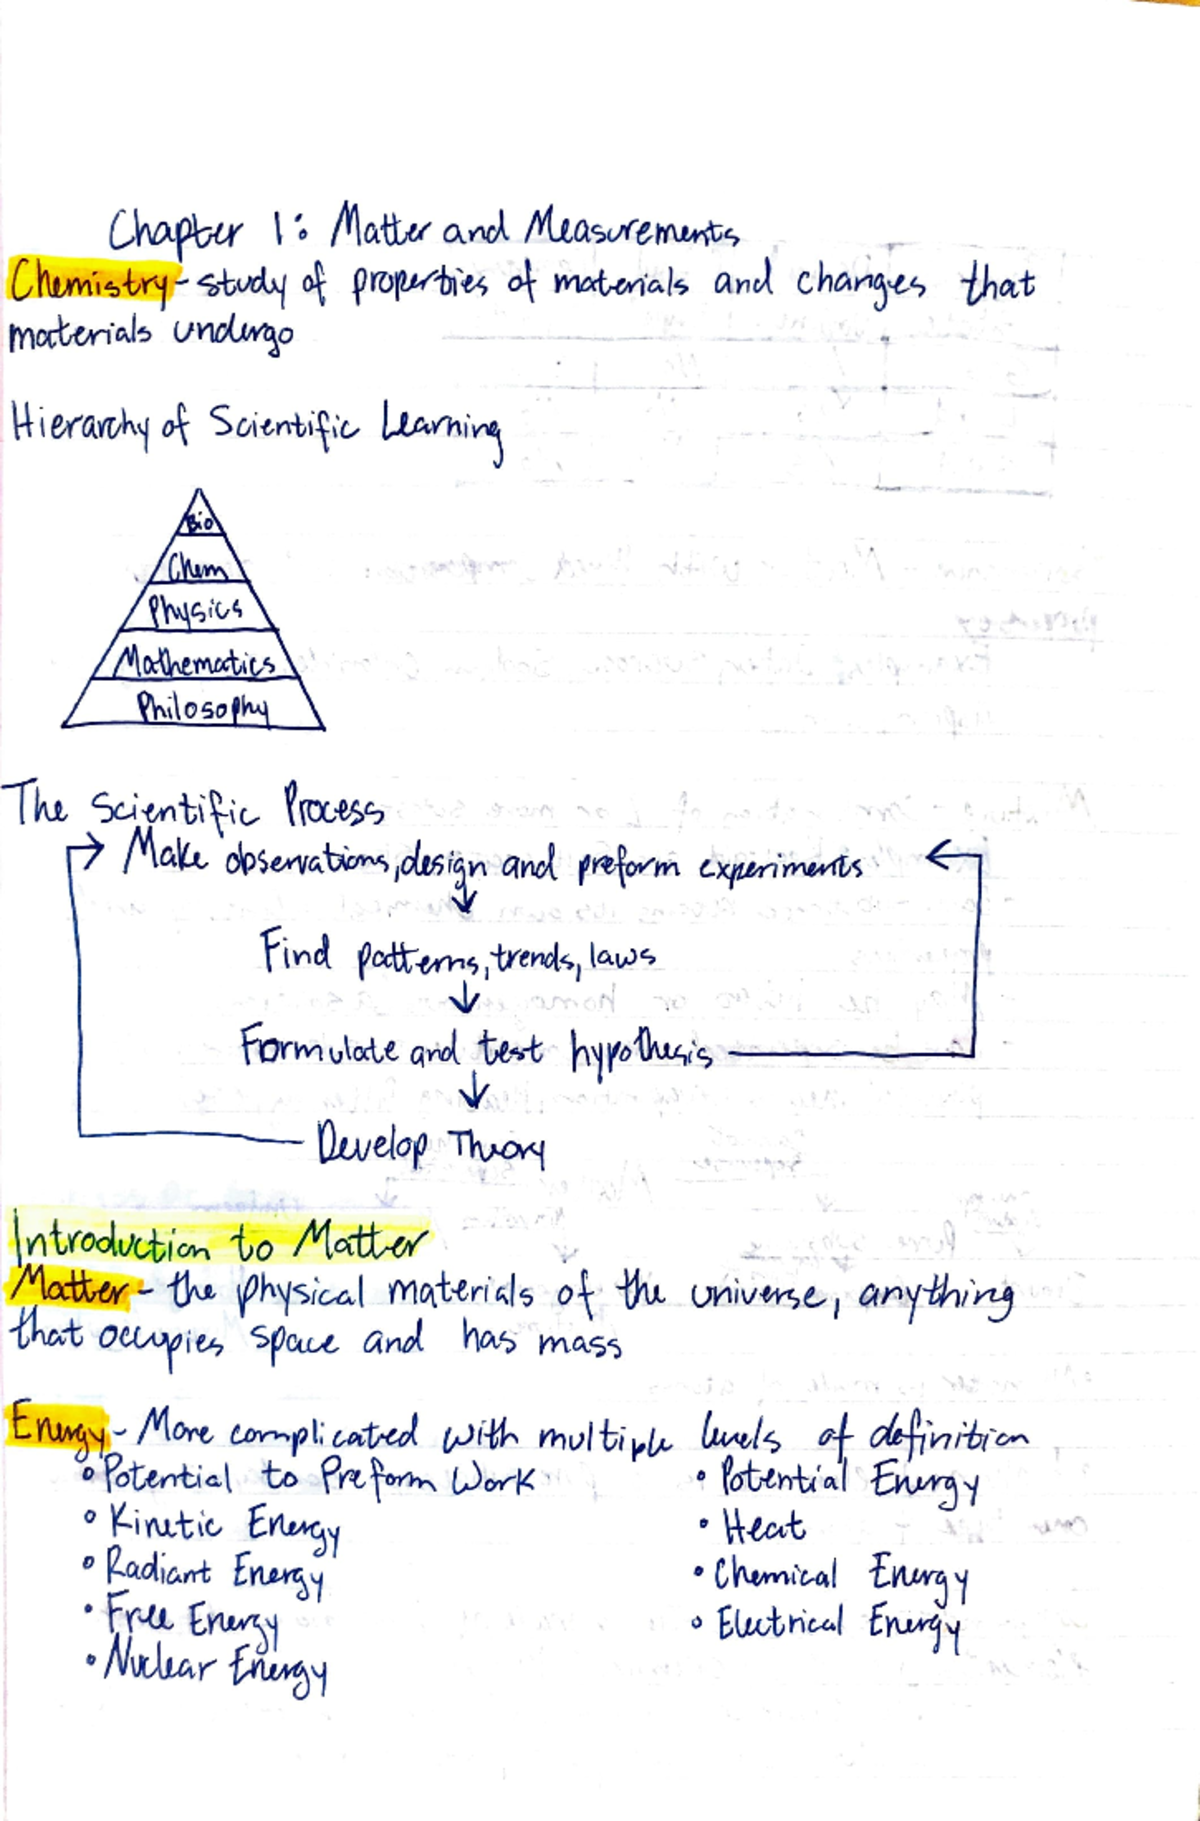 Chapter 1: Matter and Measurements
Chemistry - study of properties of materials and changes that
materials undergo
Hierarchy of Scientific Learning
Bio
Chem
Physics
Mathematics
Philosophy
The Scientific Process
→ Make observations, design and preform experiments ←
↓
Find patterns, trends, laws
↓
Formulate and test hypothesis
↓
Develop Theory
Introduction to Matter
Matter - the physical materials of the universe, anything
that occupies space and has mass
Energy - More complicated with multiple levels of definition
• Potential to Preform Work
• Kinetic Energy
• Radiant Energy
• Free Energy
• Nuclear Energy
• Potential Energy
• Heat
• Chemical Energy
• Electrical Energy